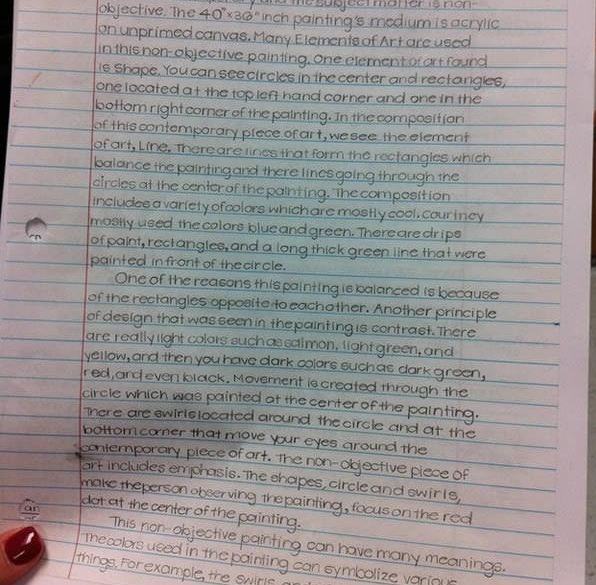 and the subject matter is non-
objective. The 40"x36" inch painting's medium is acrylic
on unprimed canvas. Many Elements of Art are used
in this non-objective painting. One element of art found
is Shape. You can see circles in the center and rectangles,
one located at the top left hand corner and one in the
bottom right corner of the painting. In the composition
of this contemporary piece of art, we see the element
of art, Line. There are lines that form the rectangles which
balance the painting and there lines going through the
circles at the center of the painting. The composition
includes a variety of colors which are mostly cool. Courtney
mostly used the colors blue and green. There are drips
of paint, rectangles, and a long thick green line that were
painted in front of the circle.
One of the reasons this painting is balanced is because
of the rectangles opposite to each other. Another principle
of design that was seen in the painting is contrast. There
are really light colors such as salmon, light green, and
yellow, and then you have dark colors such as dark green,
red, and even black. Movement is created through the
circle which was painted at the center of the painting.
There are swirls located around the circle and at the
bottom corner that move your eyes around the
contemporary piece of art. The non-objective piece of
art includes emphasis. The shapes, circle and swirls,
make the person observing the painting, focus on the red
dot at the center of the painting.
This non-objective painting can have many meanings.
The colors used in the painting can symbolize various
things. For example, the swirls
an